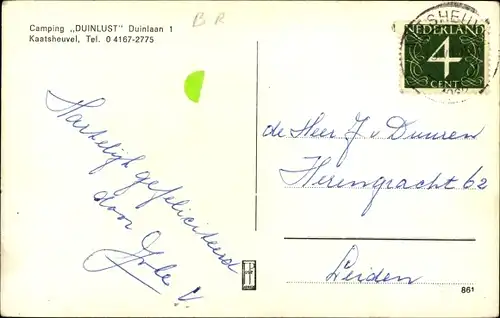 Camping „DUINLUST" Duinlaan 1
Kaatsheuvel, Tel. 0 4167-2775
BR
Hartelijk gefeliciteerd
door Jole V.
NEDERLAND
4
CENT
de Heer J v Duuren
Herengracht 62
Leiden
861